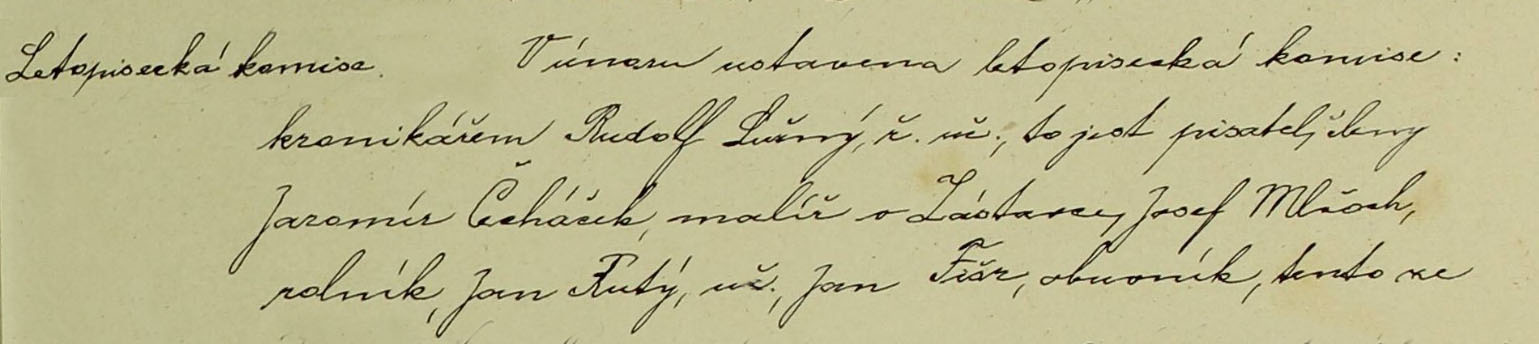 Letopisecká komise. V únoru ustavena letopisecká komise:
kronikářem Rudolf Lužný, ř. uč., to jest pisatel, členy
Jaromír Čeháček, malíř v Zástavce, Josef Mlčoch,
rolník, Jan Krutý, uč., Jan Fišr, obuvník, tento ze